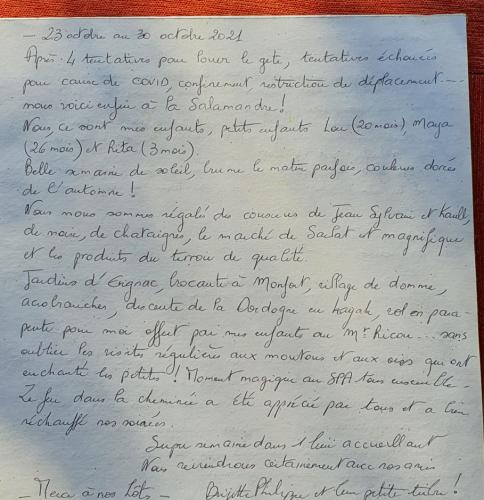 - 23 octobre au 30 octobre 2021
Après 4 tentatives pour louer le gite, tentatives échouées
pour cause de COVID, confinement restriction de déplacement ---
nous voici enfin à la Salamandre!
Nous, ce sont mes enfants, petits enfants Lou (20 mois) Maya
(26 mois) et Rita (3 mois).
Belle semaine de soleil, brume le matin parfois, couleurs dorées
de l'automne!
Nous nous sommes régalés du couscous de Jean Sylvain et
de noix, de chataignes, le marché de Sarlat est magnifique
et les produits du terroir de qualité.
Jardins d'Eyrignac, brocante à Monfort, village de domme,
accrobranches, descente de la Dordogne en kayak, vol en para-
pente pour moi offert par mes enfants au Mr Ricou... sans
oublier les visites régulières aux moutons et aux oies qui ont
enchanté les petits! Moment magique au SPA tous ensemble -
Le feu dans la cheminée a été apprécié par tous et a bien
réchauffé nos soirées.
Super semaine dans 1 lieu accueillant
Nous reviendrons certainement avec nos amis
- Merci à nos hôtes - Brigitte Philippe et leur petite tribu!